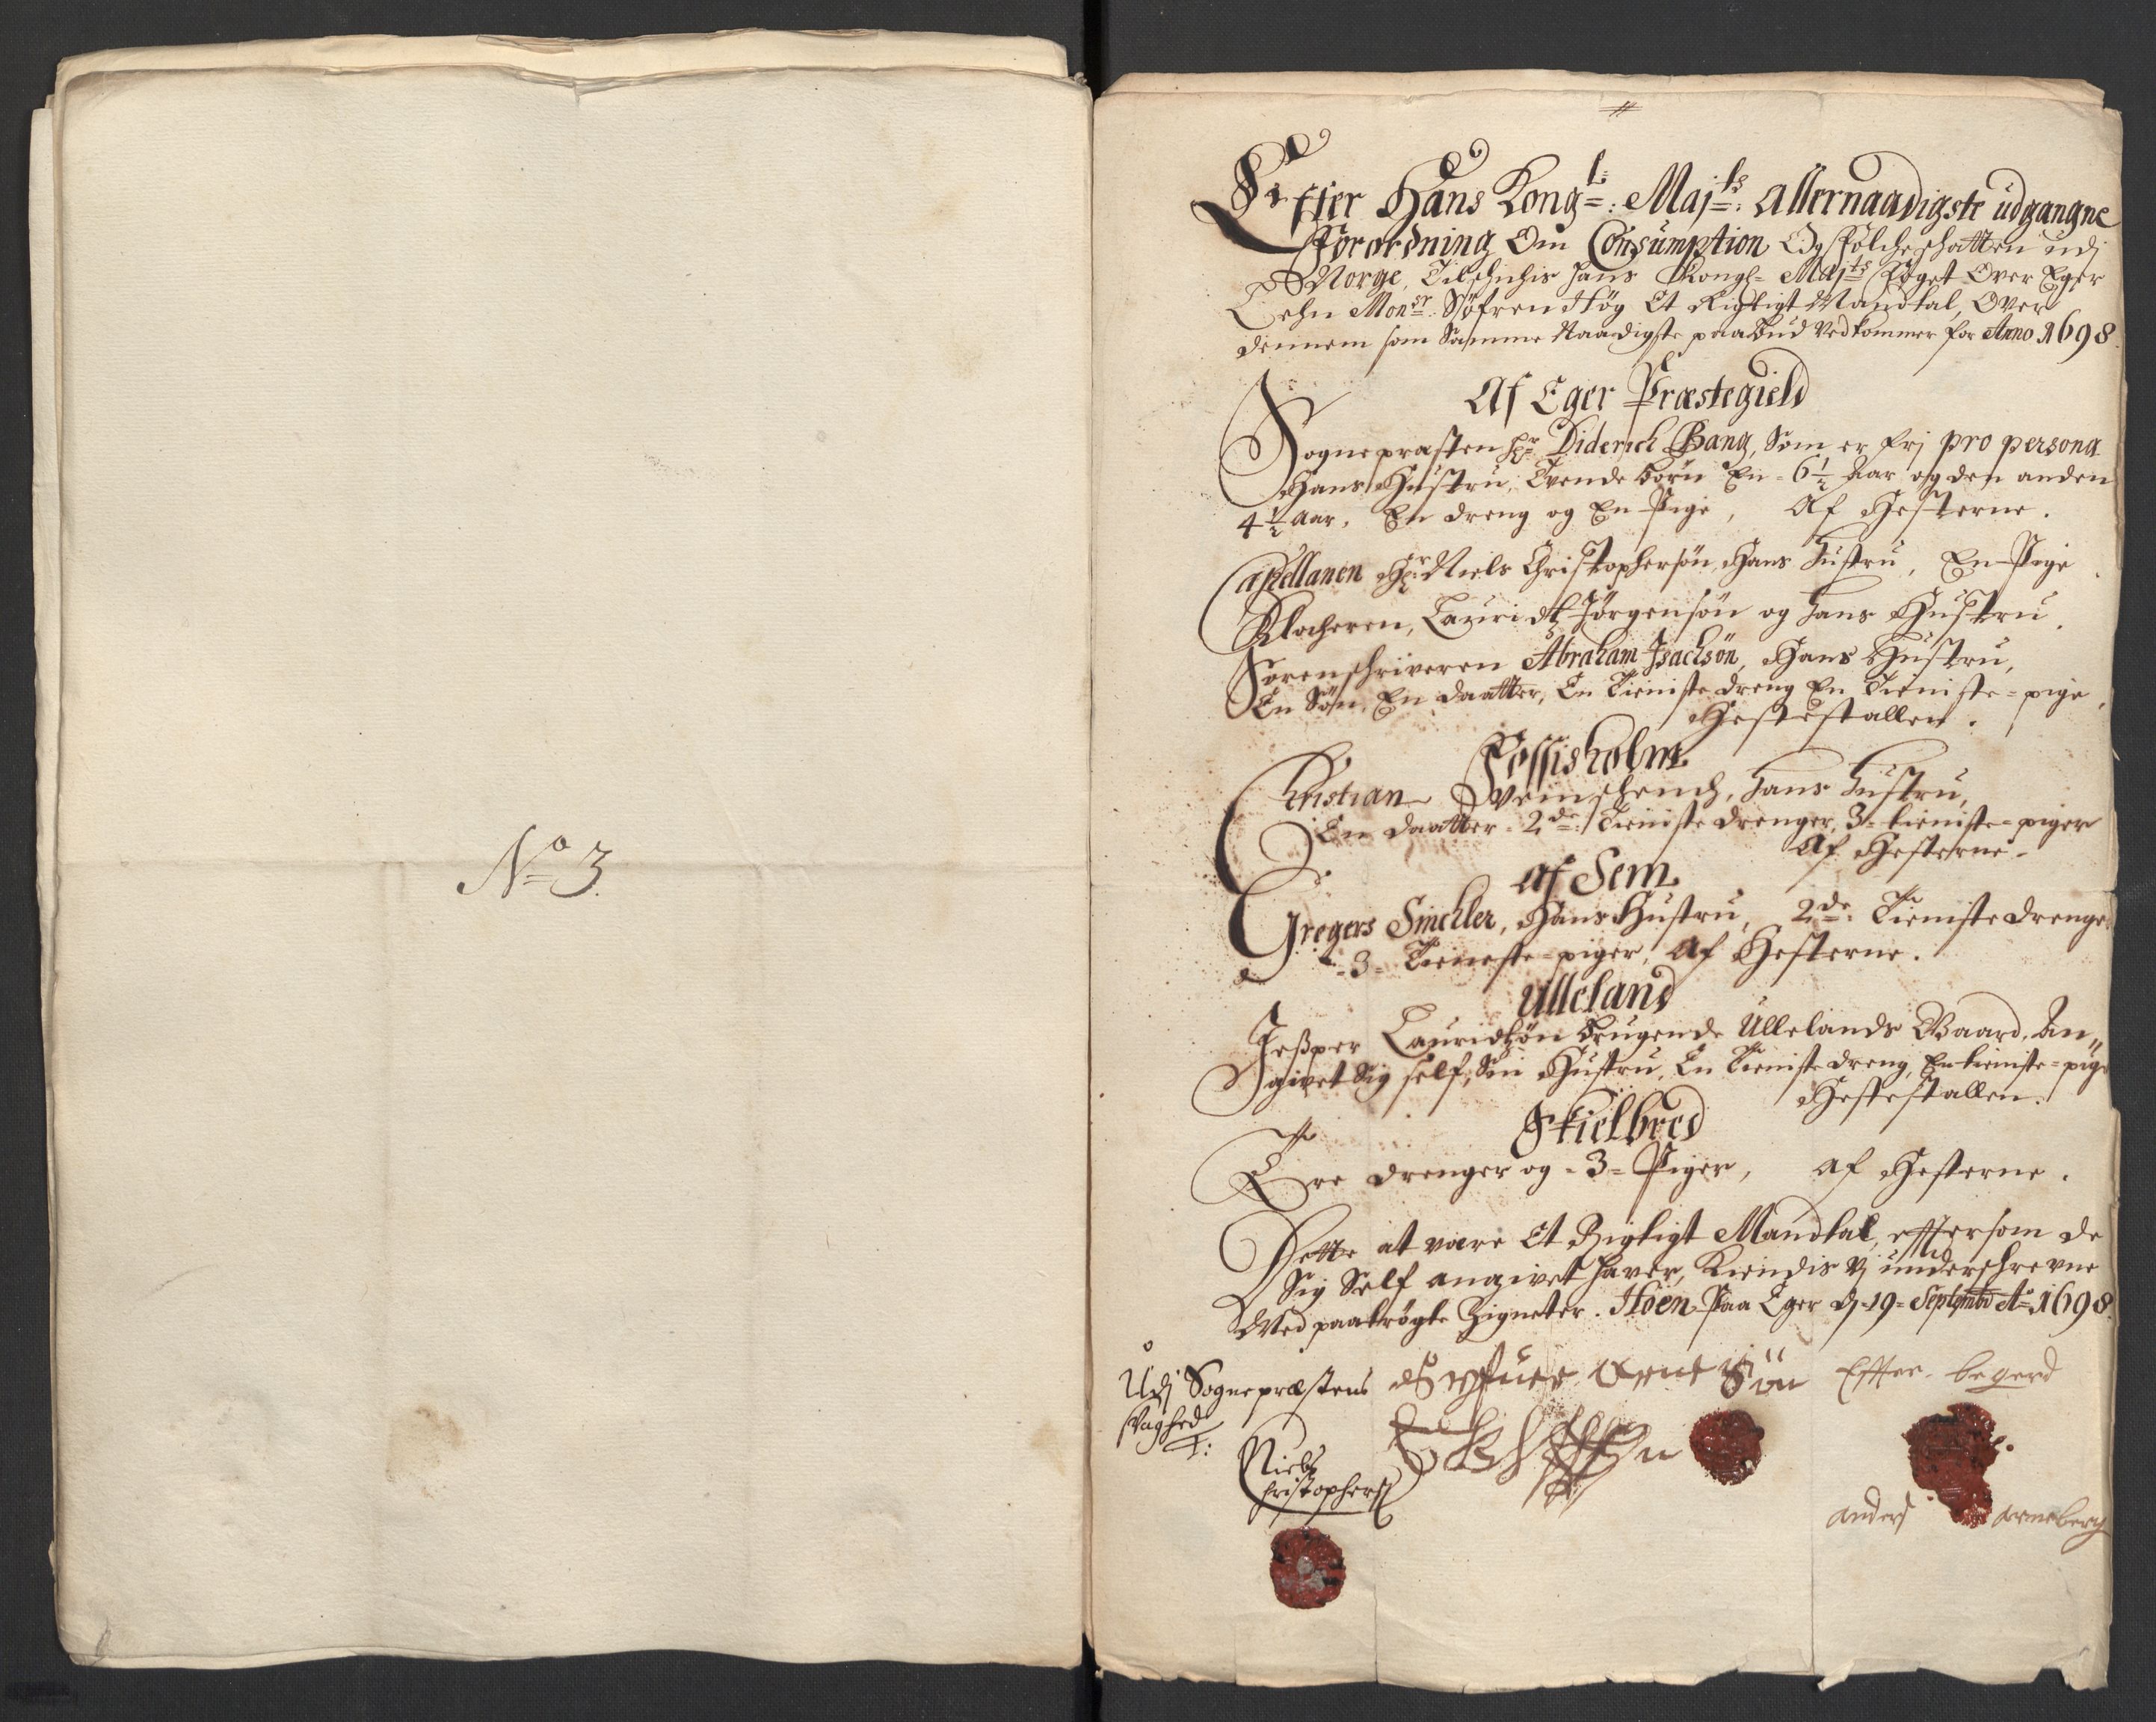 No 3.
Effter Hans Kongl: Majts: allernaadigste udgangne
Forordning Om Consumption Og Folcheschatten udj
Norge, Tilschichis hans Kongl: Majts Foget Over Eger
Lehn Monsr: Søfren Høg Et Rigtigt Mandtal, Over
dennem som Samme Naadigste paabud Vedkommer for Anno 1698
Af Eger Præstegield
Sognepræsten Hr Diderich Bang, Som er frj pro persona
Hans Hustru, Tvende börn En 6½ Aar og den anden
4½ aar, En dreng og En Pige, Af Hesterne.
Capellanen Hr: Niels Christophersøn, Hans Hustru, En Pige
Klocheren, Lauridtz Jörgensön og hans Hustru.
Sorenschriveren Abraham Isachsön, Hans Hustru,
En Sön, En daatter, En Tieniste dreng En Tieniste=pige,
Hestestallen.
Fossisholm
Christian Svemschench, hans Hustru,
En daatter 2de: Tieniste drenger, 3 tieniste=piger
Af Hesterne.
Af Sem
Gregers Sinchler, Hans Hustru, 2de: Tieniste drenge
3 Tieneste=piger, Af Hesterne.
Ulleland
Jesper Lauridtzön brugende Ullelands Gaard, An„
givet Sig self, Sin Hustru, En Tieniste dreng, En tieniste=pige
Hestestallen.
Skielbred
Tre drenger og 3 Piger, af Hesterne.
Dette at være Et Rigtigt Mandtal, effersom de
Sig Self angivet haver, Kiendis Vj underschrevne
Med paatrögte Zigneter. Hoen Paa Eger dj 19 Septembr Ao 1698
Udj Sognepræstens
svaghed
T:
Niels
Christophersøn
Sön Effter begerd
anders armeberg